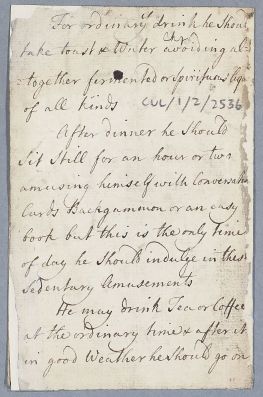 For ordinary drink he Should
take toast & Water avoiding al-
together fermented or Spirituous liqu
of all Kinds CUL/1/2/2536
After dinner he Should
Sit Still for an hour or two
amusing himself with Conversation
Cards Backgammon or an easy
book but this is the only time
of day he Should indulge in these
Sedentary Amusements
He may drink Tea or Coffee
at the ordinary time & after it
in good Weather he Should go on